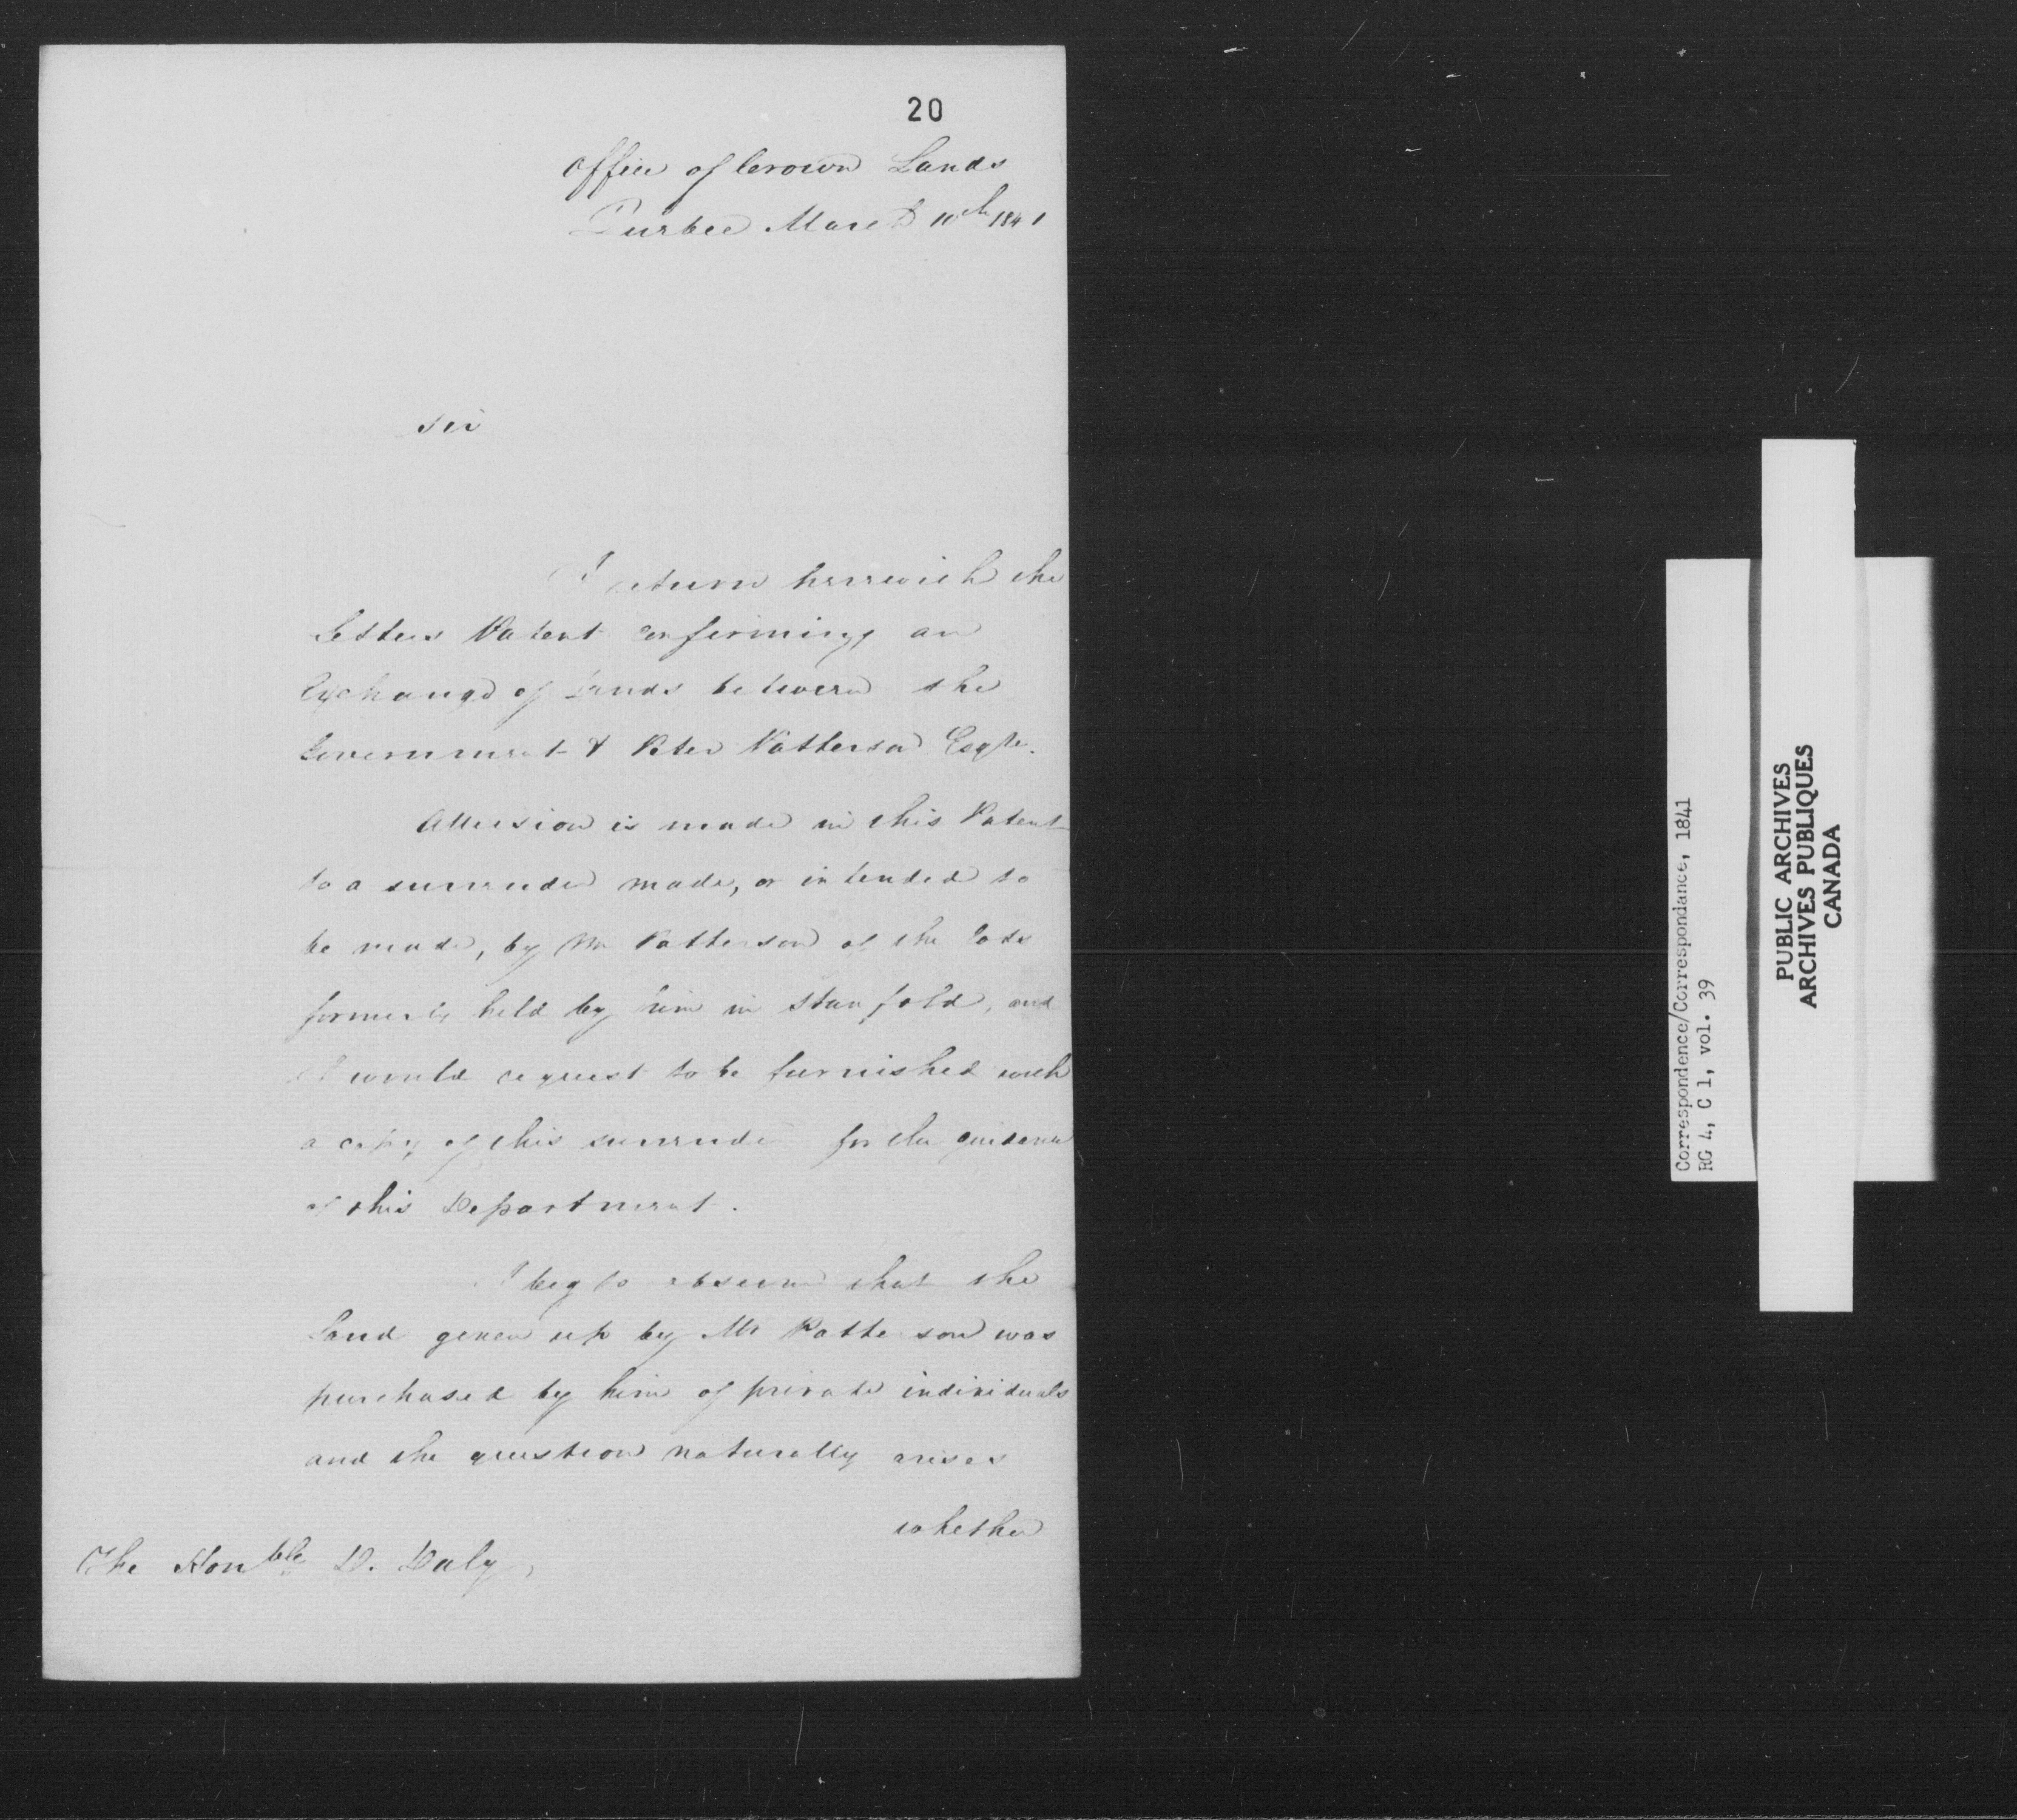 20
Office of Crown Lands
Quebec March 10th 1841
Sir
I return herewith the
Letters Patent confirming an
Exchange of Lands between the
Government & Peter Patterson Esqre.
Allusion is made in this Patent
to a surrender made, or intended to
be made, by Mr Patterson of the Lots
formerly held by him in Stanfold, and
I would request to be furnished with
a copy of this surrender for the guidance
of this Department.
I beg to observe that the
Land given up by Mr Patterson was
purchased by him of private individuals
and the question naturally arises
whether
The Honble D. Daly,
Correspondence/Correspondance, 1841
RG 4, C 1, vol. 39
PUBLIC ARCHIVES
ARCHIVES PUBLIQUES
CANADA